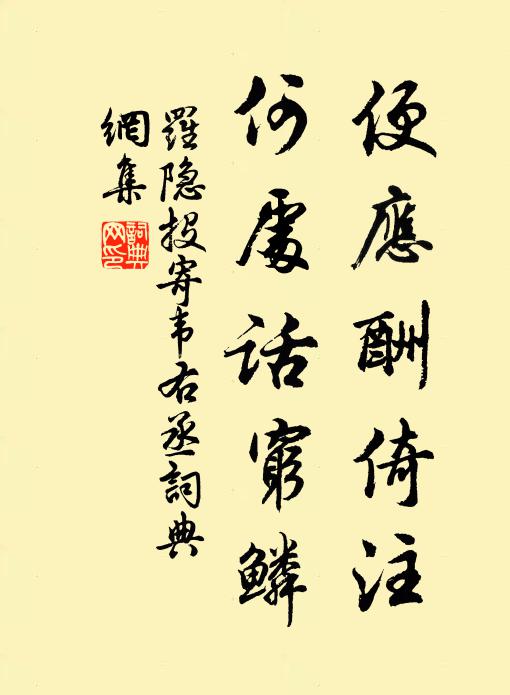 便應酬倚注
何處話窮鱗
羅隐投寄韦右丞詞典
網集
詞典
网印